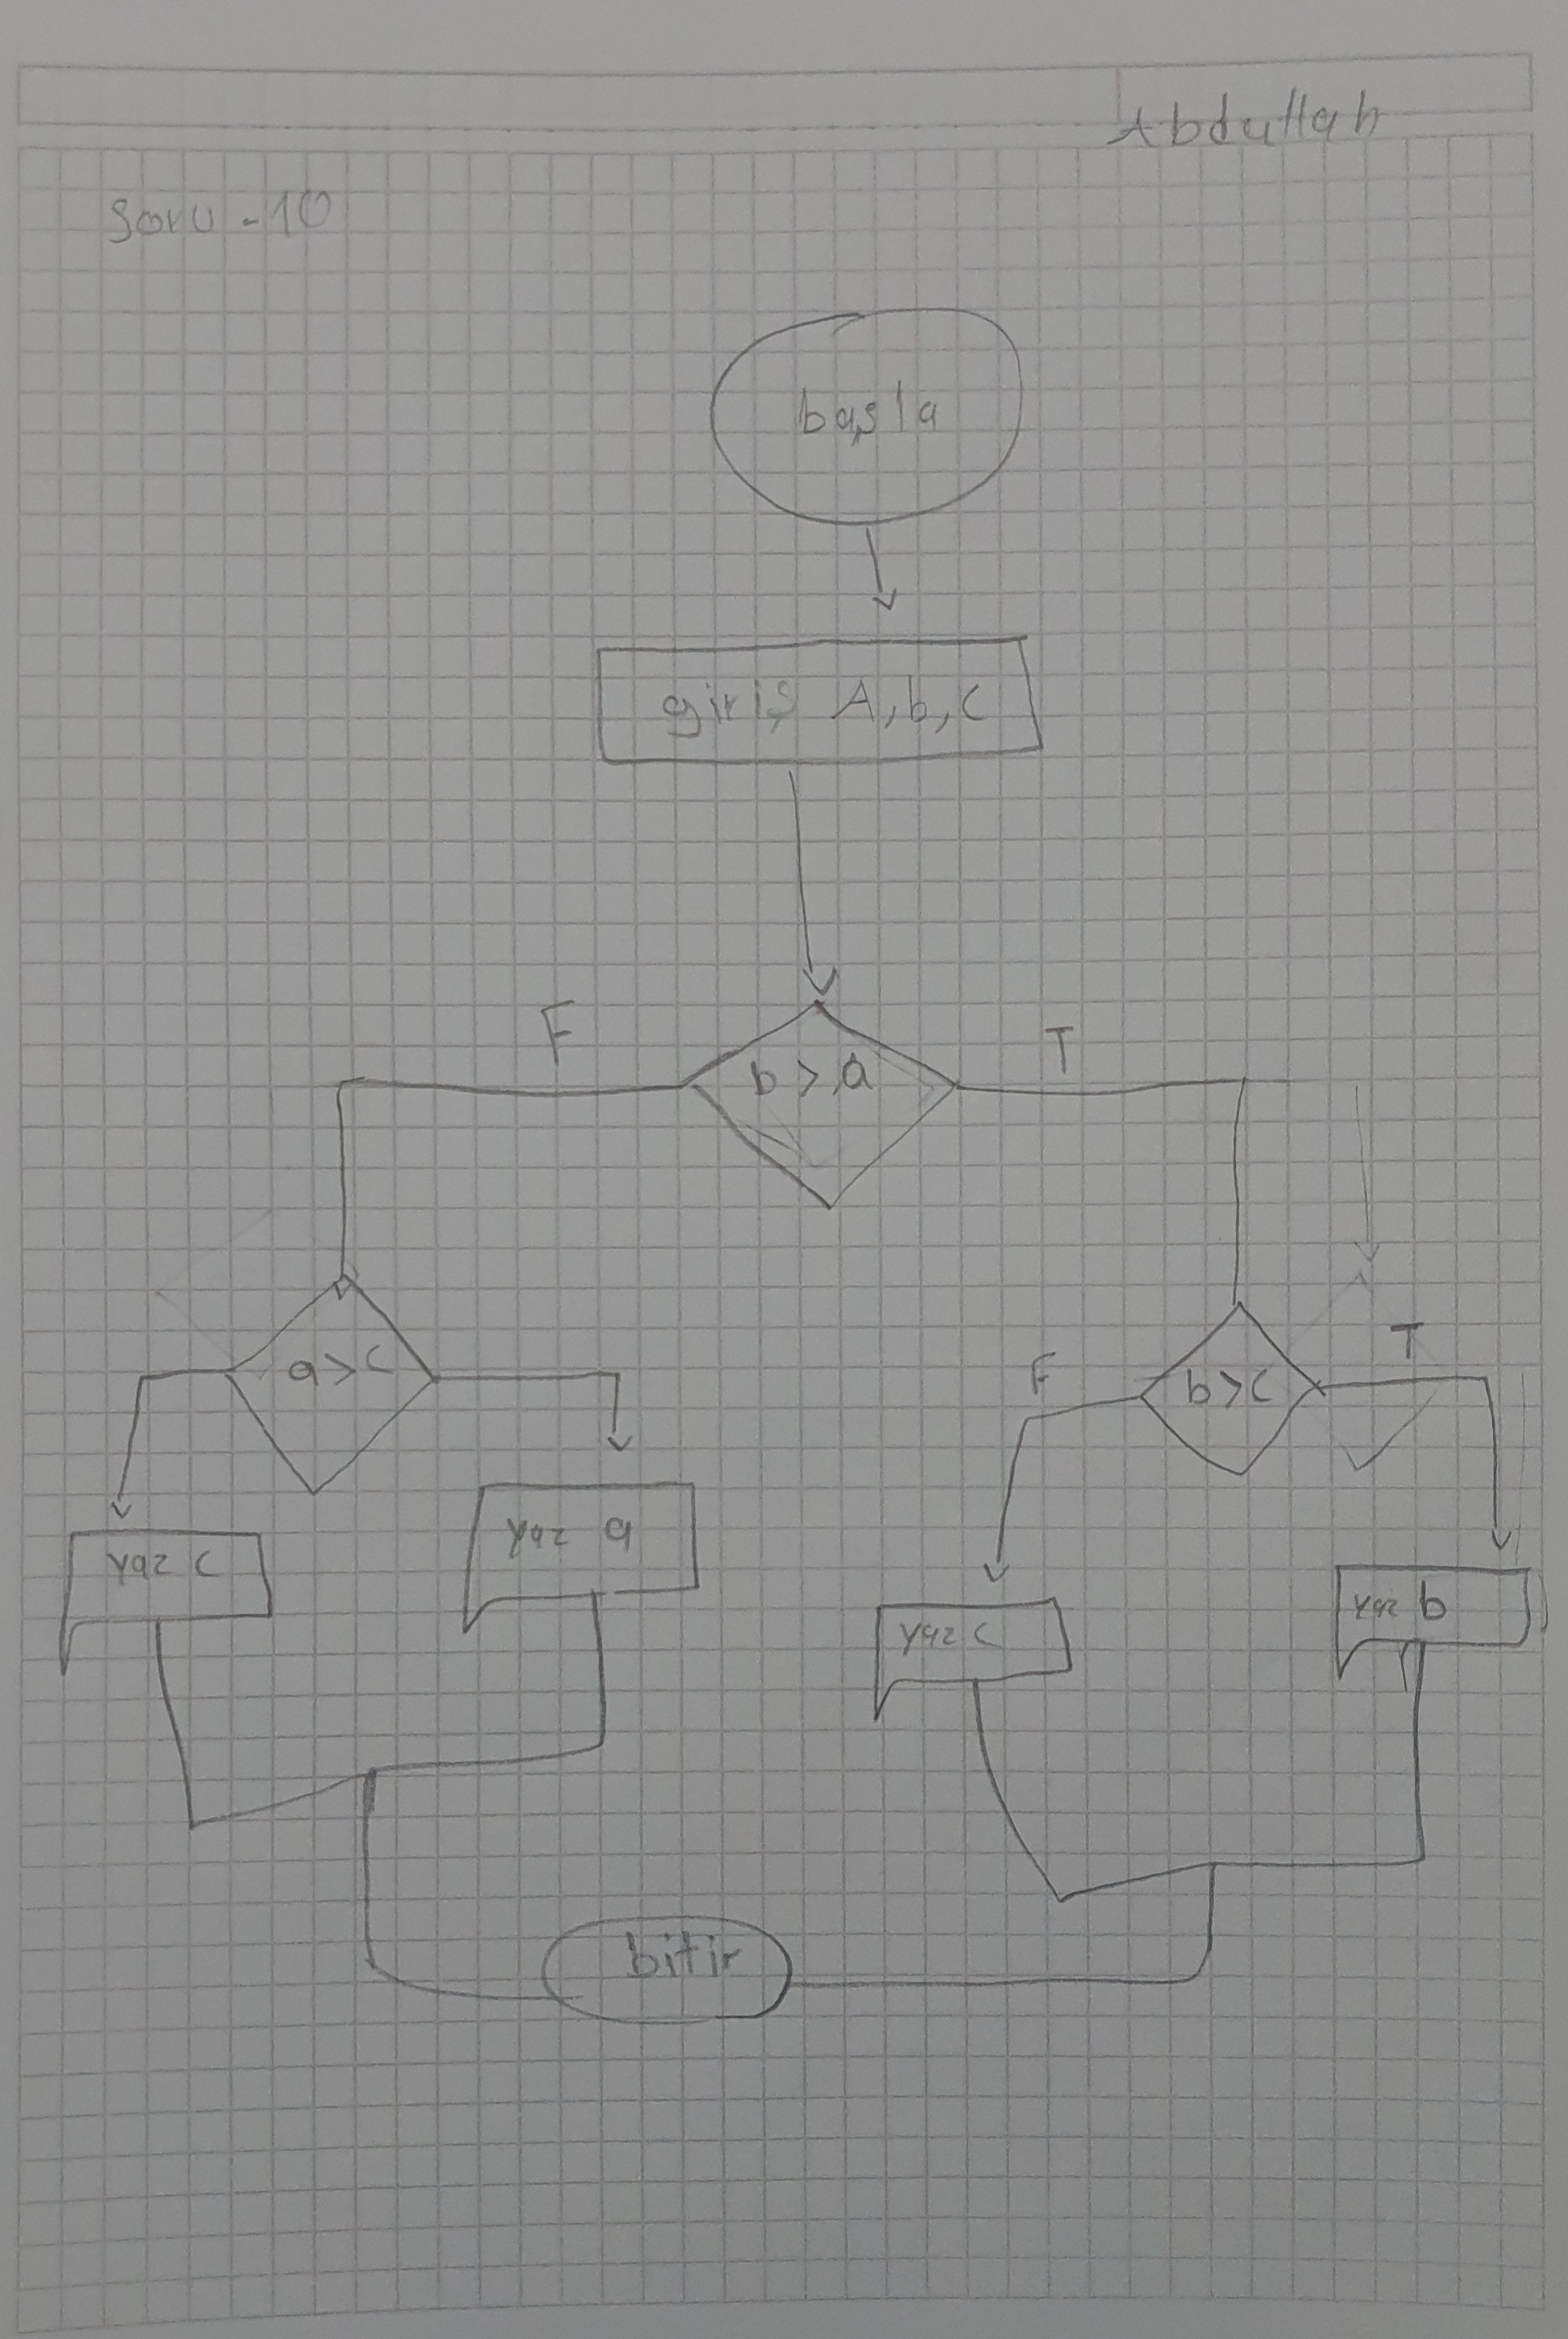 Abdullah
Soru -10
başla
giriş A,b,c
F
T
b > a
a>c
F
b>c
T
yaz c
yaz a
yaz c
yaz b
bitir